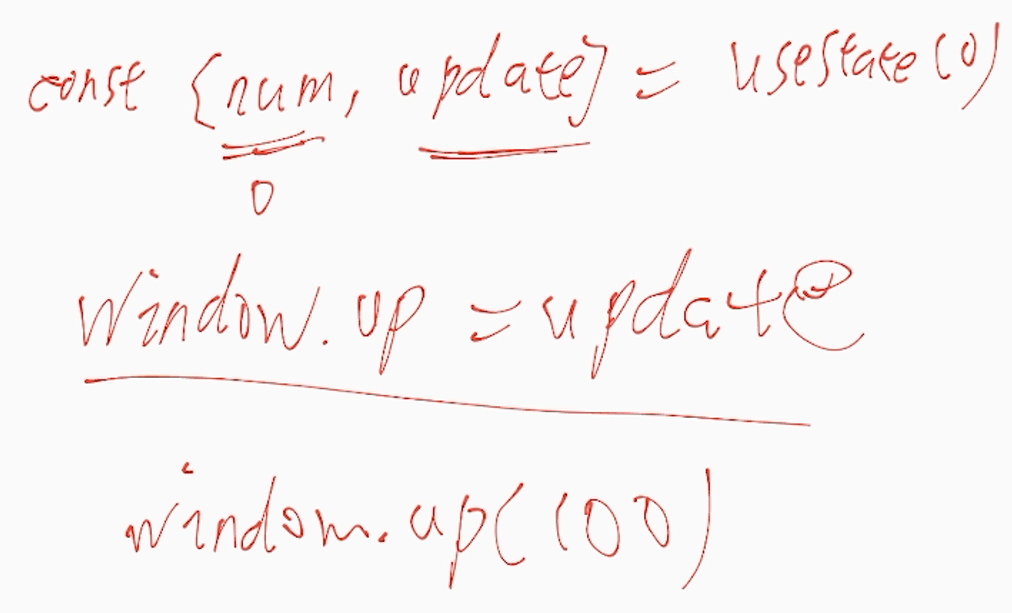 const {num, update} = usestate(0)
0
window.up = update
window.up(100)